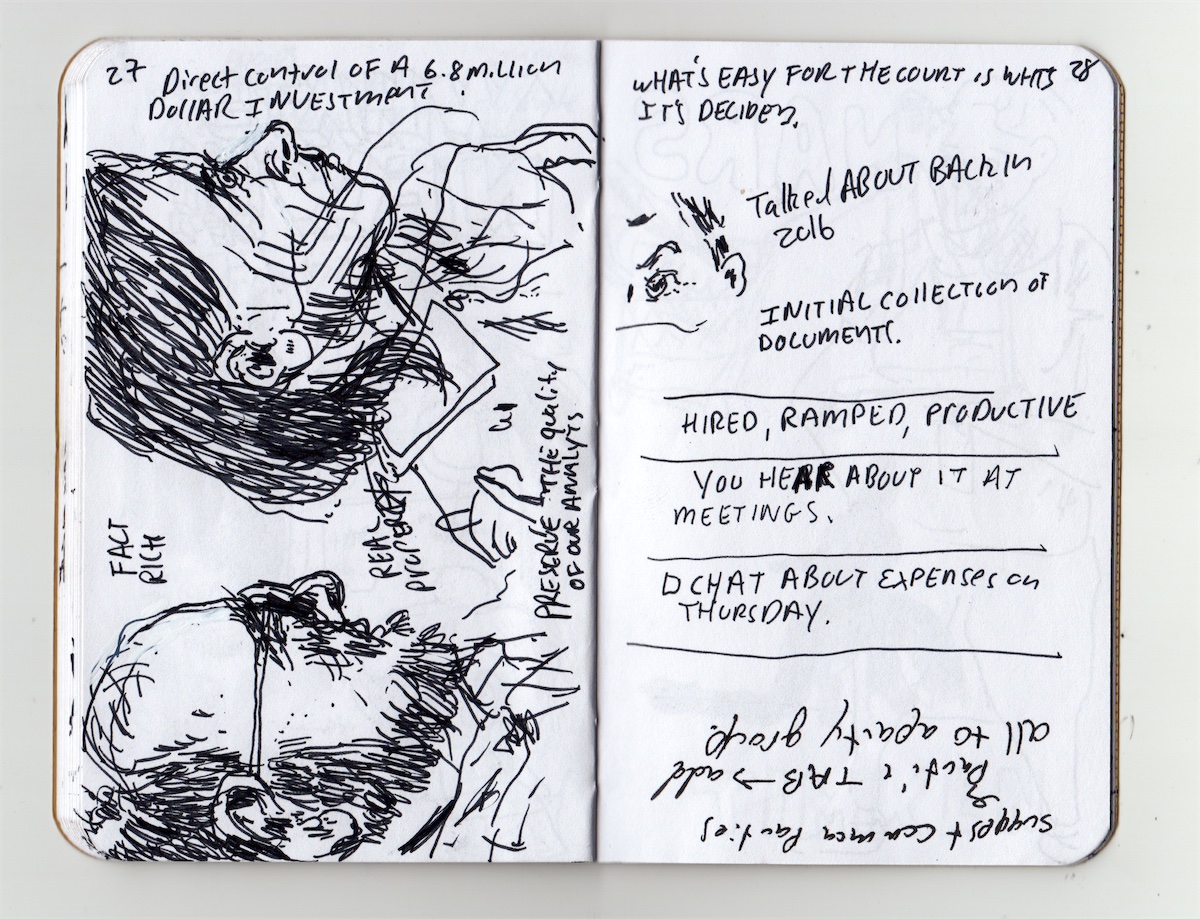 27 Direct control OF A 6.8 million
DOllAR INVESTMENT.
FACT
RICH
REAL
PROPERTY
PRESERVE THE quality
OF OUR ANALYTS
28
WHAT'S EASY FOR THE COURT IS WHTS
IT'S DECIDED.
Talked ABOUT BACK IN
2016
INITIAL COllECTION OF
DOCUMENTS.
HIRED, RAMPED, PRODUCTIVE
YOU HEAR ABOUT IT AT
MEETINGS.
CHAT ABOUT EXPENSES on
THURSDAY.
suggest common Parties
TAB → add
all to group.